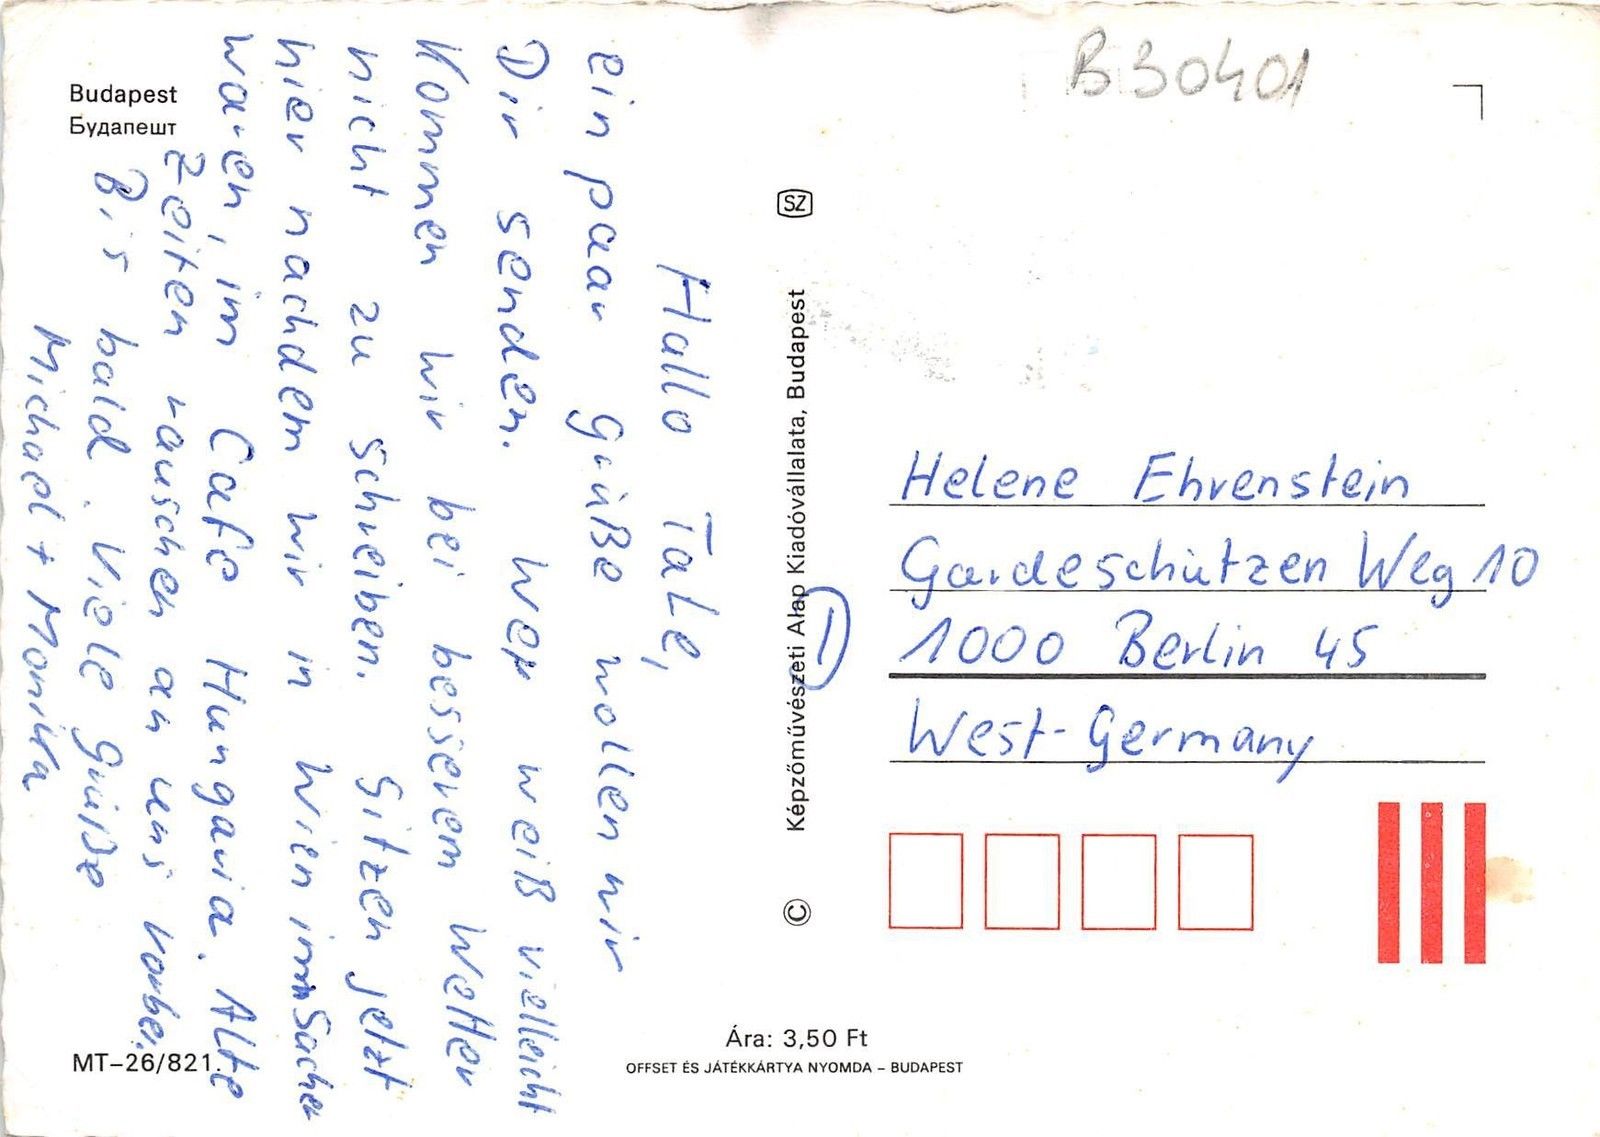 Budapest
Будапешт
B 30401
Hallo Tate,
ein paar Grüße wollen wir
Dir senden. Wer weiß vielleicht
kommen wir bei besserem Wetter
nicht zu schreiben. Sitzen jetzt
hier nachdem wir in Wien im Sacher
waren, im Cafe Hungaria. Alte
Zeiten rauschen an uns vorbei.
Bis bald. Viele Grüße
Michael + Monika
SZ
© Képzőművészeti Alap Kiadóvállalata, Budapest
Helene Ehrenstein
Gardeschützen Weg 10
1000 Berlin 45
West-Germany
MT–26/821.
Ára: 3,50 Ft
OFFSET ÉS JÁTÉKKÁRTYA NYOMDA – BUDAPEST